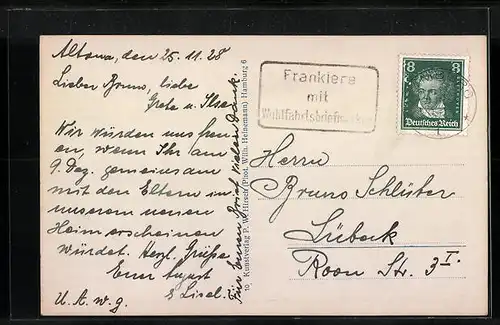 Altona, den 25.11.28
Lieber Bruno, liebe
Grete u. Ilse!
Wir würden uns freu-
en, wenn Ihr am
9. Dez. gemeinsam
mit den Eltern in
unserem neuen
Heim erscheinen
würdet. Herzl. Grüße
Euer August
& Liesel.
U. A. w. g.
Für Euren Brief vielen Dank.
10 Kunstverlag P. W. Hirsch (Phot. Wilh. Heinemann) Hamburg 6
Frankiere
mit
Wohlfahrtsbriefmarken
8 8
Deutsches Reich
Herrn
Bruno Schlüter
Lübeck
Roon Str. 3 I.